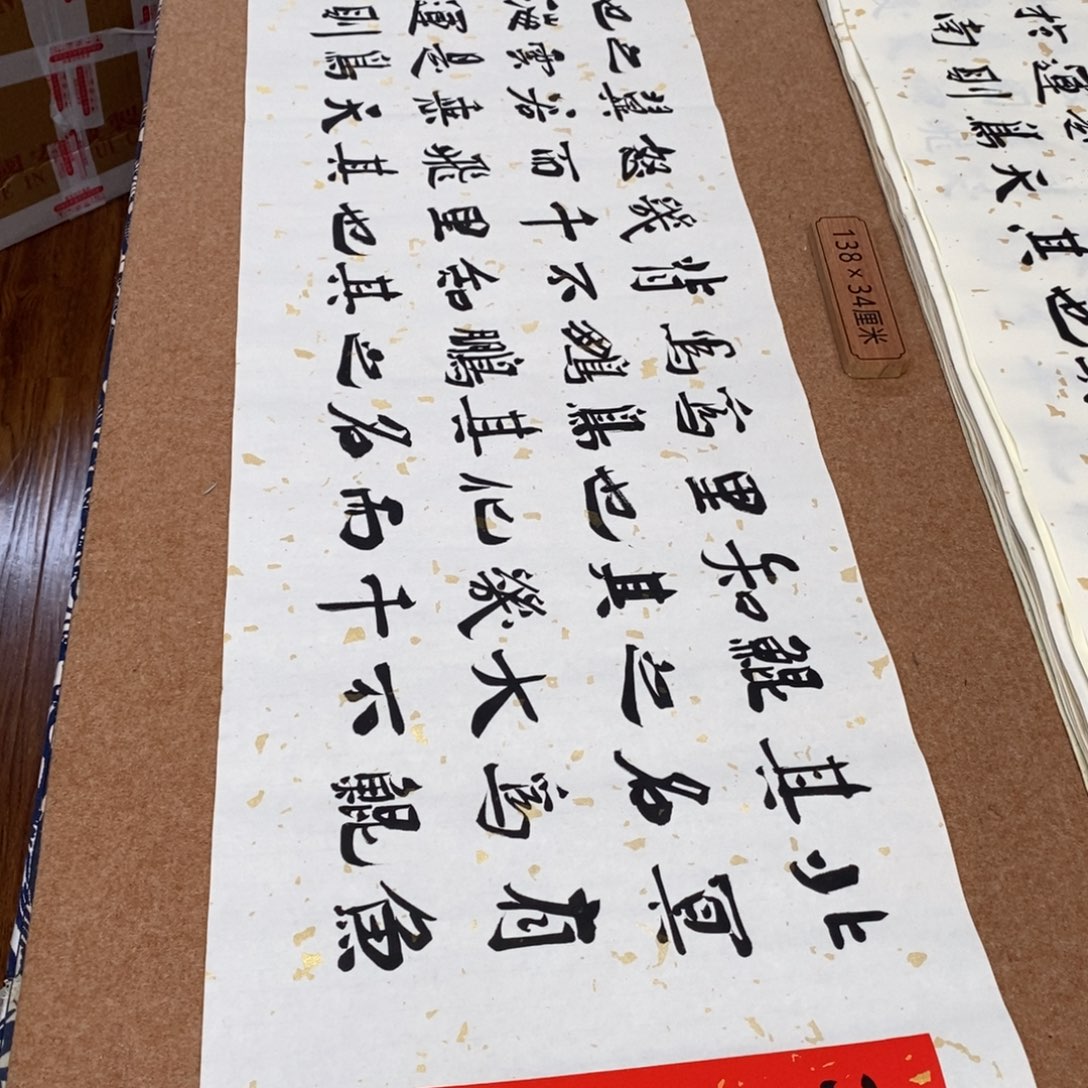 北冥有魚
其名為鯤
鯤之大不
知其幾千
里也化而
為鳥其名
為鵬鵬之
背不知其
幾千里也
怒而飛其
翼若垂天
之雲是鳥
也海運則
138×34厘米
運則
鳥
天
其
也